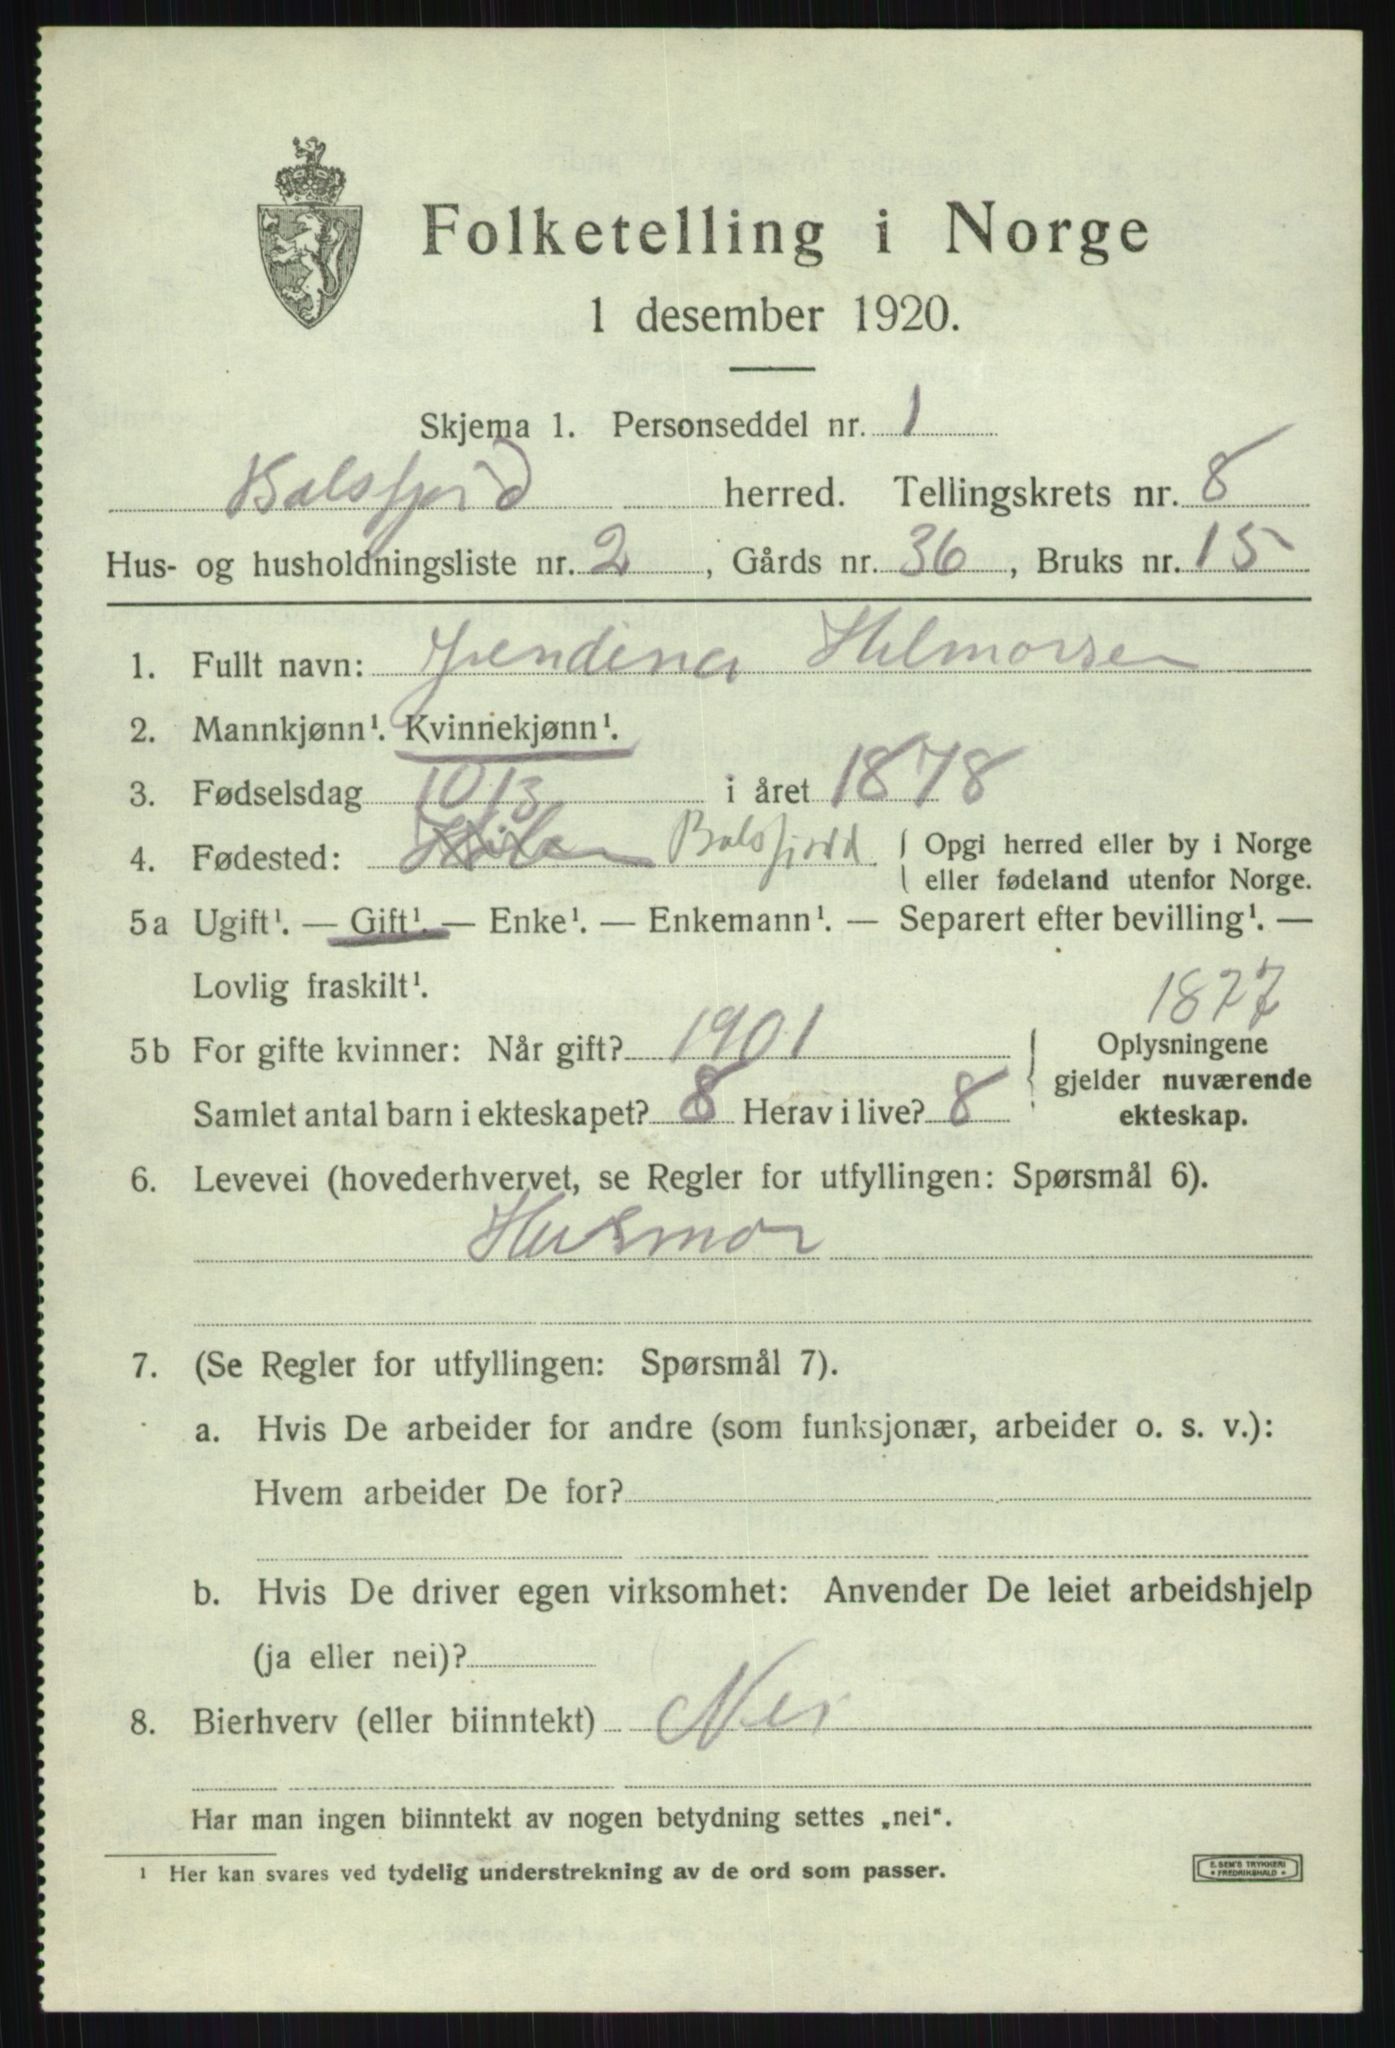 Folketelling i Norge
1 desember 1920.
Skjema 1. Personseddel nr. 1
Balsfjord herred. Tellingskrets nr. 8
Hus- og husholdningsliste nr. 2, Gårds nr. 36, Bruks nr. 15
1. Fullt navn: Hilmorsen
2. Mannkjønn¹. Kvinnekjønn¹.
3. Fødselsdag 10/3 i året 1878
4. Fødested: Balsfjord { Opgi herred eller by i Norge
eller fødeland utenfor Norge.
5a Ugift¹. — Gift¹. — Enke¹. — Enkemann¹. — Separert efter bevilling¹. —
Lovlig fraskilt¹.
1877
5b For gifte kvinner: Når gift? 1901 { Oplysningene
gjelder nuværende
Samlet antal barn i ekteskapet? 8 Herav i live? 8 ekteskap.
6. Levevei (hovederhvervet, se Regler for utfyllingen: Spørsmål 6).
Husmor
7. (Se Regler for utfyllingen: Spørsmål 7).
a. Hvis De arbeider for andre (som funksjonær, arbeider o. s. v.):
Hvem arbeider De for?
b. Hvis De driver egen virksomhet: Anvender De leiet arbeidshjelp
(ja eller nei)?
8. Bierhverv (eller biinntekt) Nei
Har man ingen biinntekt av nogen betydning settes „nei“.
¹ Her kan svares ved tydelig understrekning av de ord som passer.
E. SEM'S TRYKKERI
• FREDRIKSHALD •